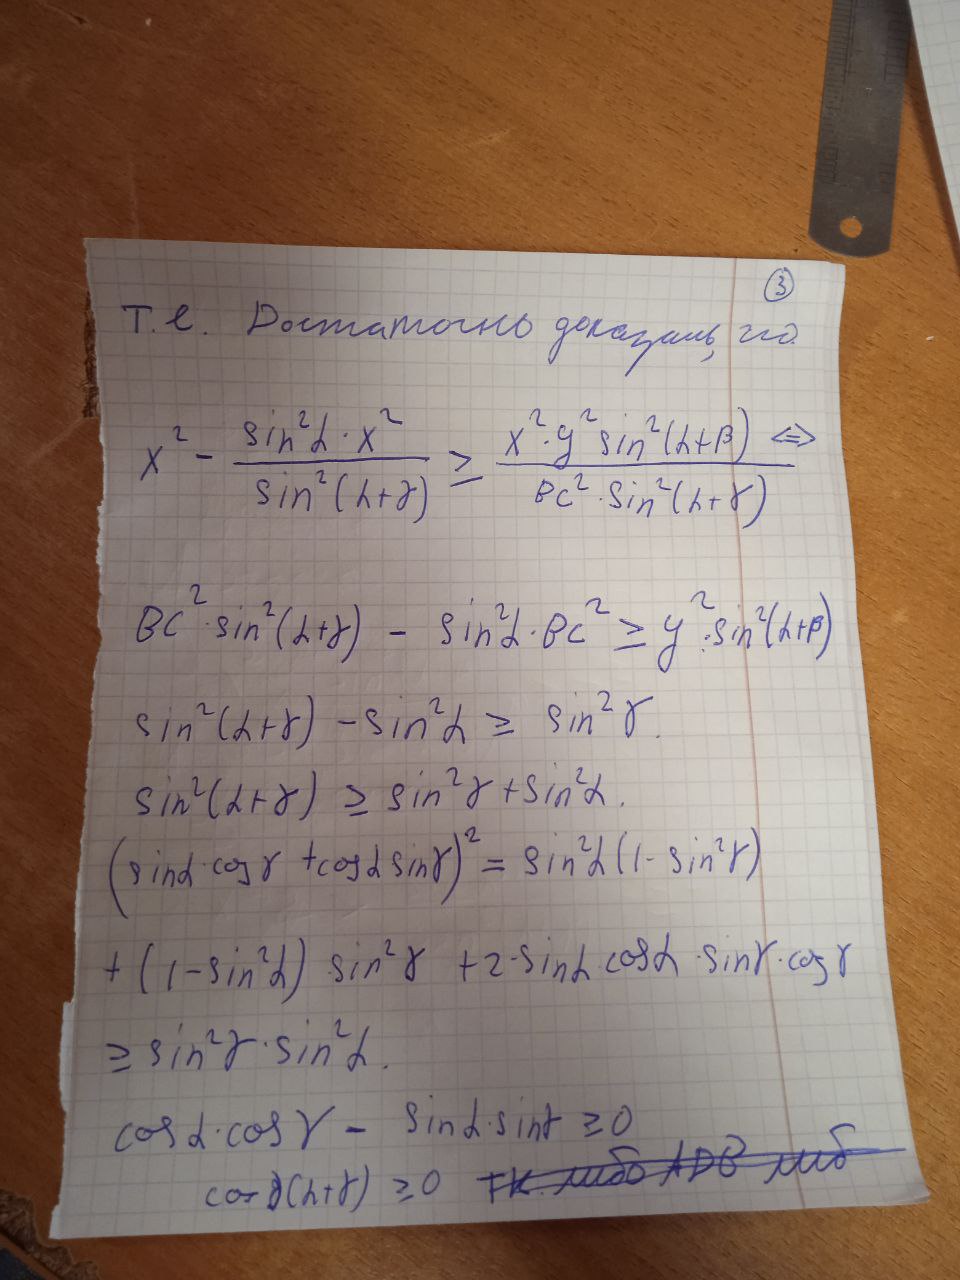 3
Т.е. Достаточно доказать, что
x² - sin²α·x² / sin²(α+γ) ≥ x²·y² sin²(α+β) / BC²·sin²(α+γ) <=>
BC²·sin²(α+γ) - sin²α·BC² ≥ y²·sin²(α+β)
sin²(α+γ) - sin²α ≥ sin²γ.
sin²(α+γ) ≥ sin²γ + sin²α.
(sinα·cosγ + cosα sinγ)² = sin²α(1 - sin²γ)
+ (1 - sin²α) sin²γ + 2·sinα cosα·sinγ·cosγ
≥ sin²γ·sin²α.
cosα·cosγ - sinα·sinγ ≥ 0
cos(α+γ) ≥ 0 т.к. либо ADB либ